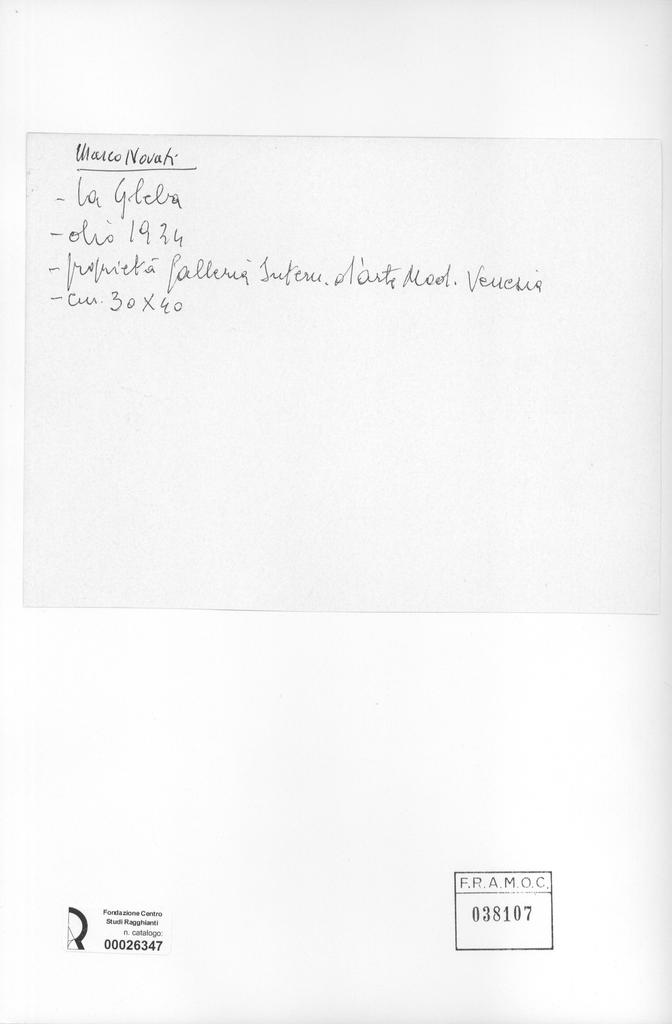 Marco Novati
- la Gleba
- olio 1924
- proprietà Galleria Intern. d'arte Mod. Venezia
- cm. 30 X 40
Fondazione Centro
Studi Ragghianti
n. catalogo:
00026347
F.R.A.M.O.C.
038107